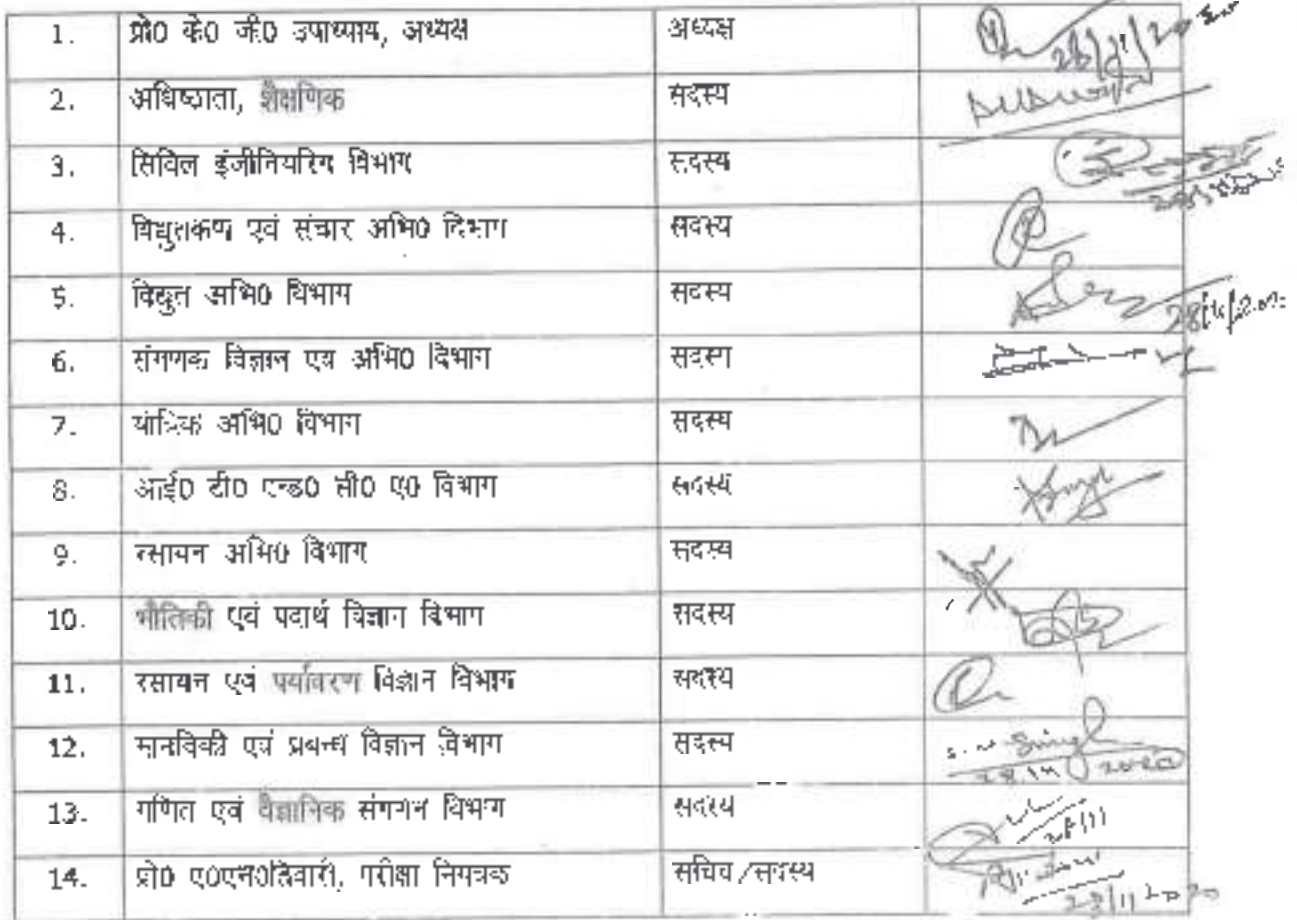 1. प्रो0 के0 जी0 उपाध्याय, अध्यक्ष अध्यक्ष
2. अधिष्ठाता, शैक्षणिक सदस्य
3. सिविल इंजीनियरिंग विभाग सदस्य
4. विद्युतकण एवं संचार अभि0 विभाग सदस्य
5. विद्युत अभि0 विभाग सदस्य 28/11/20
6. संगणक विज्ञान एवं अभि0 विभाग सदस्य
7. यांत्रिक अभि0 विभाग सदस्य
8. आई0 टी0 एन्ड0 सी0 ए0 विभाग सदस्य
9. रसायन अभि0 विभाग सदस्य
10. भौतिकी एवं पदार्थ विज्ञान विभाग सदस्य
11. रसायन एवं पर्यावरण विज्ञान विभाग सदस्य
12. मानविकी एवं प्रबन्ध विज्ञान विभाग सदस्य Singh
28.11.2020
13. गणित एवं वैज्ञानिक संगणन विभाग सदस्य 28/11
14. प्रो0 ए0एन0तिवारी, परीक्षा नियंत्रक सचिव/सदस्य
28/11/2020